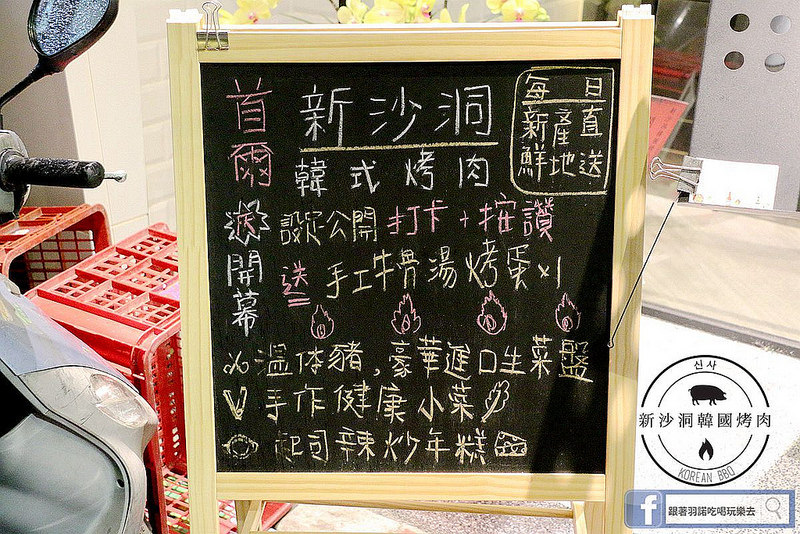 首爾 新沙洞
韓式烤肉
每日
新鮮產地直送
開幕
送 設定公開 打卡+按讚
送 手工牛骨湯烤蛋x1
溫体豬,豪華進口生菜盤
手作健康小菜
起司辣炒年糕
신사
新沙洞韓國烤肉
KOREAN BBQ
f 跟著羽諾吃喝玩樂去